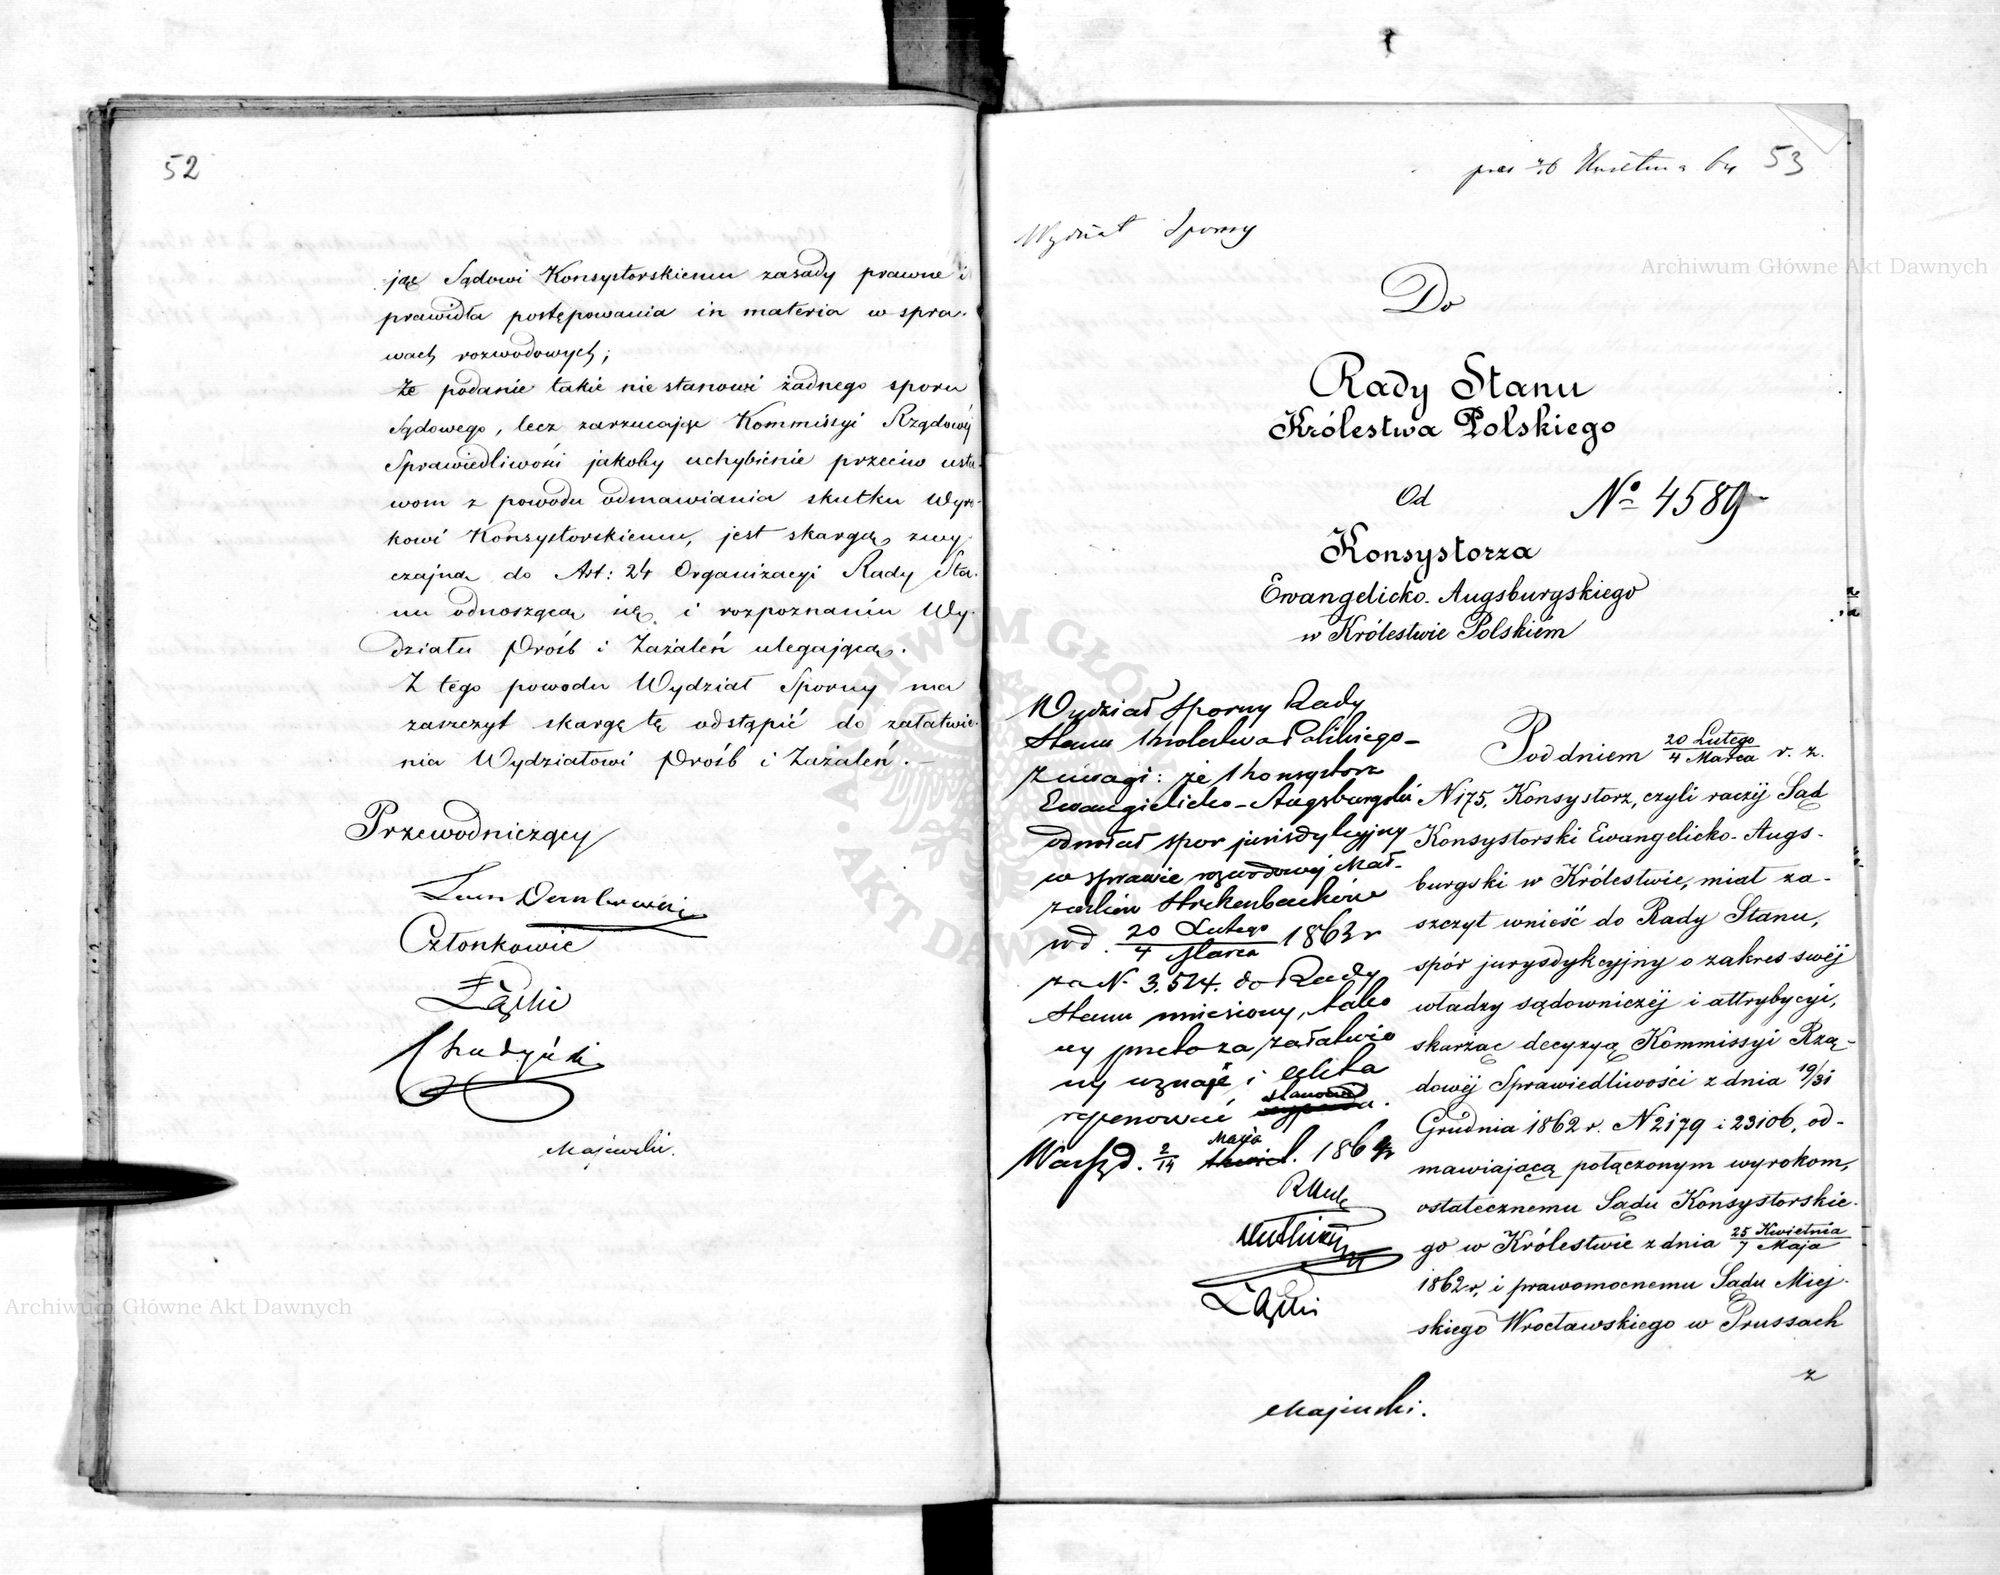 52
jąc Sądowi Konsystorskiemu zasady prawne i
prawidła postępowania in materia w spra-
wach rozwodowych;
że podanie takie nie stanowi żadnego sporu
Sądowego, lecz zarzucając Kommissyi Rządowéj
Sprawiedliwości jakoby uchybienie przeciw usta-
wom z powodu odmawiania skutku Wyro-
kowi Konsystorskiemu, jest skargą zwy-
czajną do Art: 24 Organizacyi Rady Sta-
nu odnoszącą się i rozpoznaniu Wy-
działu Próśb i Zażaleń ulegającą.
Z tego powodu Wydział Sporny ma
zaszczyt skargę tę odstąpić do załatwie-
nia Wydziałowi Próśb i Zażaleń. –
Przewodniczący
Członkowie
Łąski
Majewski.
53
Wydział Sporny
Do
Rady Stanu
Królestwa Polskiego
Od
№ 4589
Konsystorza
Ewangelicko-Augsburgskiego
w Królestwie Polskiém
Wydział Sporny Rady
Stanu Królestwa Polskiego –
z uwagi: że Konsystorz
Ewangielicko-Augsburgski
odwołał spor jurisdykcyjny
w sprawie rozwodowej Mał-
żonków
w d. 20 Lutego/4 Marca 1863 r
za N. 3.524. do Rady
Stanu wniesiony, tako
wy przeto za załatwio
ny uznaje i akta
reponować stanowi.
Warsz. d. 2/14 Maja 1864 r
Łąski
Majewski.
Pod dniem 20 Lutego/4 Marca r. z.
N 175, Konsystorz, czyli raczéj Sąd
Konsystorski Ewangelicko-Augs-
burgski w Królestwie, miał za-
szczyt wnieść do Rady Stanu,
spór jurysdykcyjny o zakres swéj
władzy sądowniczéj i attrybycyi,
skarżąc decyzyą Kommissyi Rzą-
dowéj Sprawiedliwości z dnia 19/31
Grudnia 1862 r. N 2179 i 23106, od-
mawiającą połączonym wyrokom,
ostatecznemu Sądu Konsystorskie-
go w Królestwie z dnia 25 Kwietnia/7 Maja
1862 r, i prawomocnemu Sądu Miej-
skiego Wrocławskiego w Prussach
z
Archiwum Główne Akt Dawnych
Archiwum Główne Akt Dawnych